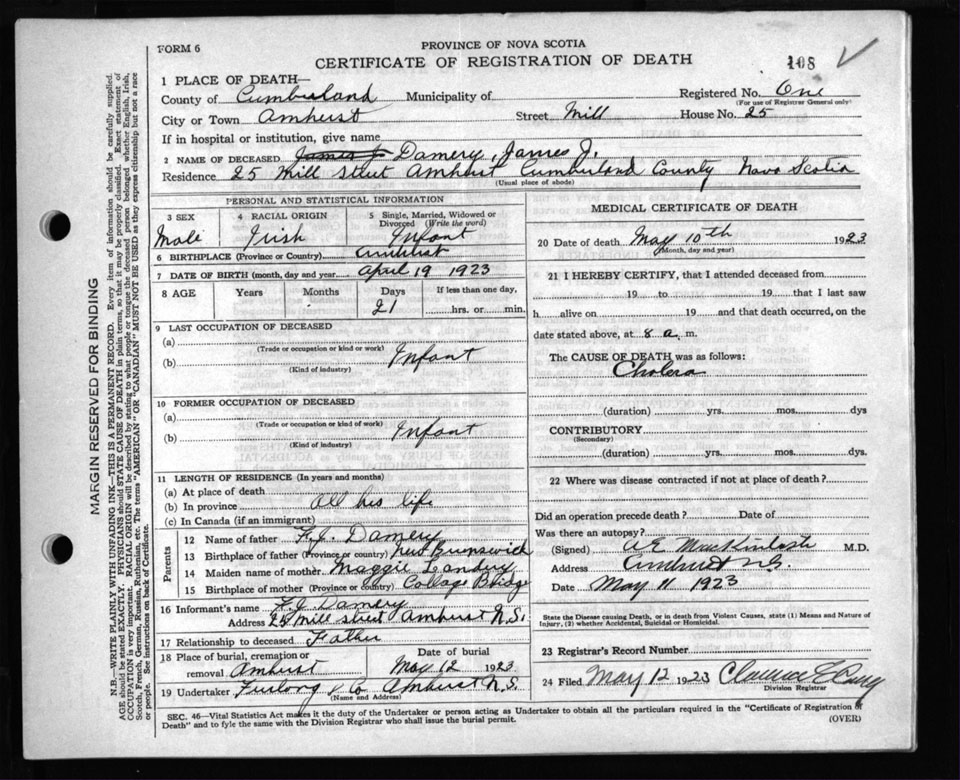 FORM 6
PROVINCE OF NOVA SCOTIA
CERTIFICATE OF REGISTRATION OF DEATH
108
1 PLACE OF DEATH—
County of Cumberland Municipality of Registered No. One
(For use of Registrar General only)
City or Town Amherst Street Mill House No. 25
If in hospital or institution, give name
2 NAME OF DECEASED James J Damery, James J.
Residence 25 Mill Street Amherst Cumberland County Nova Scotia
(Usual place of abode)
PERSONAL AND STATISTICAL INFORMATION
3 SEX
Male
4 RACIAL ORIGIN
Irish
5 Single, Married, Widowed or
Divorced (Write the word)
Infant
6 BIRTHPLACE (Province or Country) Amherst
7 DATE OF BIRTH (month, day and year) April 19 1923
8 AGE Years Months Days If less than one day,
21 hrs. or min.
9 LAST OCCUPATION OF DECEASED
(a)
(Trade or occupation or kind or work)
(b) Infant
(Kind of industry)
10 FORMER OCCUPATION OF DECEASED
(a)
(Trade or occupation or kind or work)
(b) Infant
(Kind of industry)
11 LENGTH OF RESIDENCE (In years and months)
(a) At place of death
(b) In province All his life
(c) In Canada (if an immigrant)
Parents
12 Name of father F.J. Damery
13 Birthplace of father (Province or country) New Brunswick
14 Maiden name of mother Maggie Landry
15 Birthplace of mother (Province or country) College Bridge
16 Informant's name F J Damery
Address 25 Mill Street Amherst N.S.
17 Relationship to deceased Father
18 Place of burial, cremation or removal Date of burial
Amherst May 12 1923
19 Undertaker Furlong & Co Amherst N.S.
(Name and Address)
MEDICAL CERTIFICATE OF DEATH
20 Date of death May 10th 1923
(Month, day and year)
21 I HEREBY CERTIFY, that I attended deceased from
19 to 19 that I last saw
h alive on 19 and that death occurred, on the
date stated above, at 8 a. m.
The CAUSE OF DEATH was as follows:
Cholera
(duration) yrs. mos. dys
CONTRIBUTORY
(Secondary)
(duration) yrs. mos. dys.
22 Where was disease contracted if not at place of death?
Did an operation precede death? Date of
Was there an autopsy?
(Signed) MacKintosh M.D.
Address Amherst N.S.
Date May 11 1923
State the Disease causing Death, or in death from Violent Causes, state (1) Means and Nature of
Injury, (2) whether Accidental, Suicidal or Homicidal.
23 Registrar's Record Number
24 Filed May 12 1923 Clarence
Division Registrar
SEC. 46—Vital Statistics Act makes it the duty of the Undertaker or person acting as Undertaker to obtain all the particulars required in the "Certificate of Registration of
Death" and to fyle the same with the Division Registrar who shall issue the burial permit.
(OVER)
MARGIN RESERVED FOR BINDING
N.B.—WRITE PLAINLY WITH UNFADING INK—THIS IS A PERMANENT RECORD. Every item of information should be carefully supplied.
AGE should be stated EXACTLY. PHYSICIANS should STATE CAUSE OF DEATH in plain terms, so that it may be properly classified. Exact statement of
OCCUPATION is very important. RACIAL ORIGIN will be described by stating to what people or tongue the deceased person belonged, whether English, Irish,
Scotch, French, German, Russian, Ruthenian, etc. The terms "AMERICAN" OR "CANADIAN" MUST NOT BE USED as they express citizenship but not a race
or people. See instructions on back of Certificate.